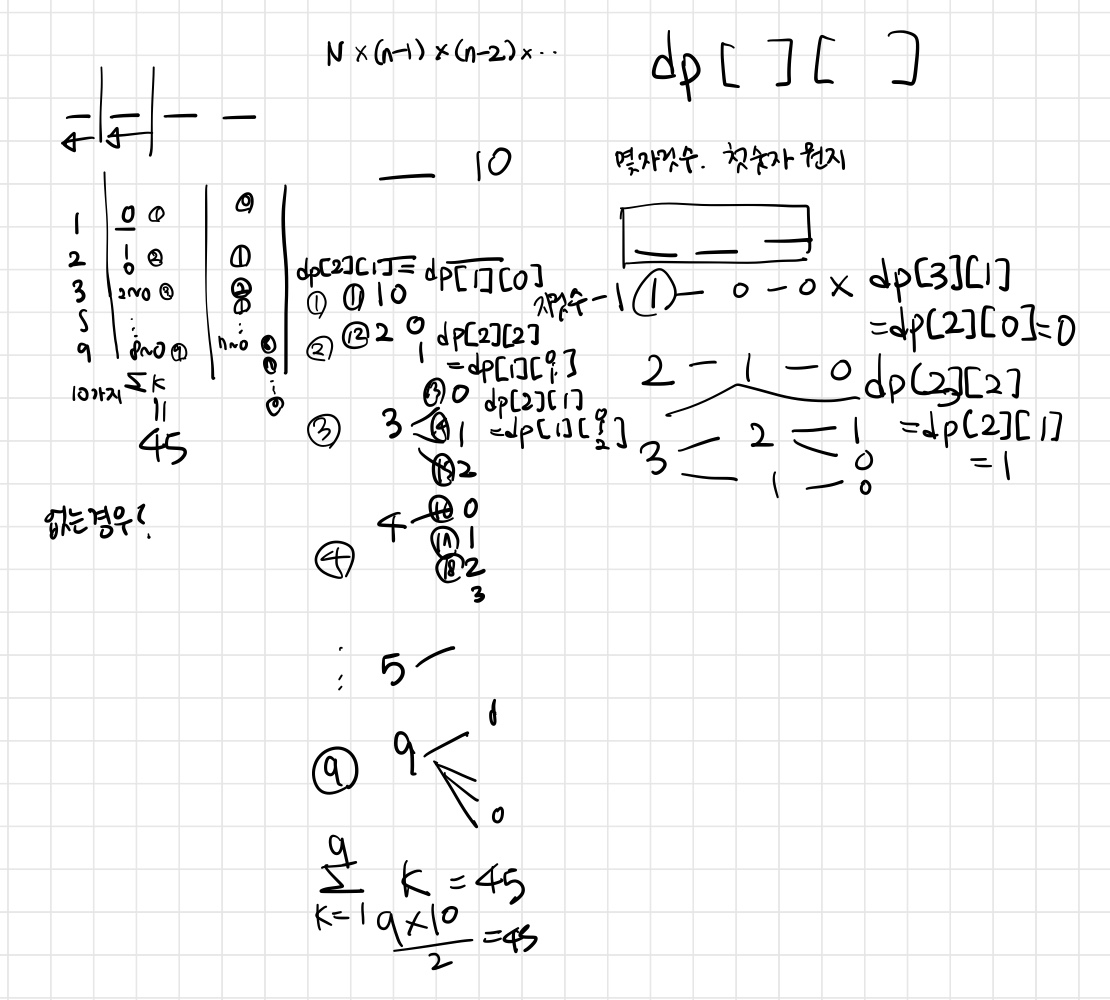 N × (n-1) × (n-2) × ..
dp [ ] [ ]
몇자릿수. 첫숫자 뭔지
10
1 0 ①
2 1 0 ② ①
3 2~0 ③ ② ①
9 8~0 ⑨ n~0
10가지 Σ K
=
45
없는경우?
dp[2][1] = dp[1][0]
① ⑪ 10
② ⑫ 2 0
1
dp[2][2]
=dp[1][0, 1]
③ 3 ⑬ 0
⑭ 1
⑮ 2
dp[2][1]
=dp[1][0 ~ 2]
④ 4 ⑯ 0
⑰ 1
⑱ 2
3
⋮ 5
⑨ 9
0
9
Σ K = 45
K=1
9×10
2
=45
자릿수-1
① - 0 - 0 ×
dp[3][1]
=dp[2][0]=0
2 - 1 - 0
dp[3][2]
=dp[2][1]
=1
3 2 1
0
1 - 0